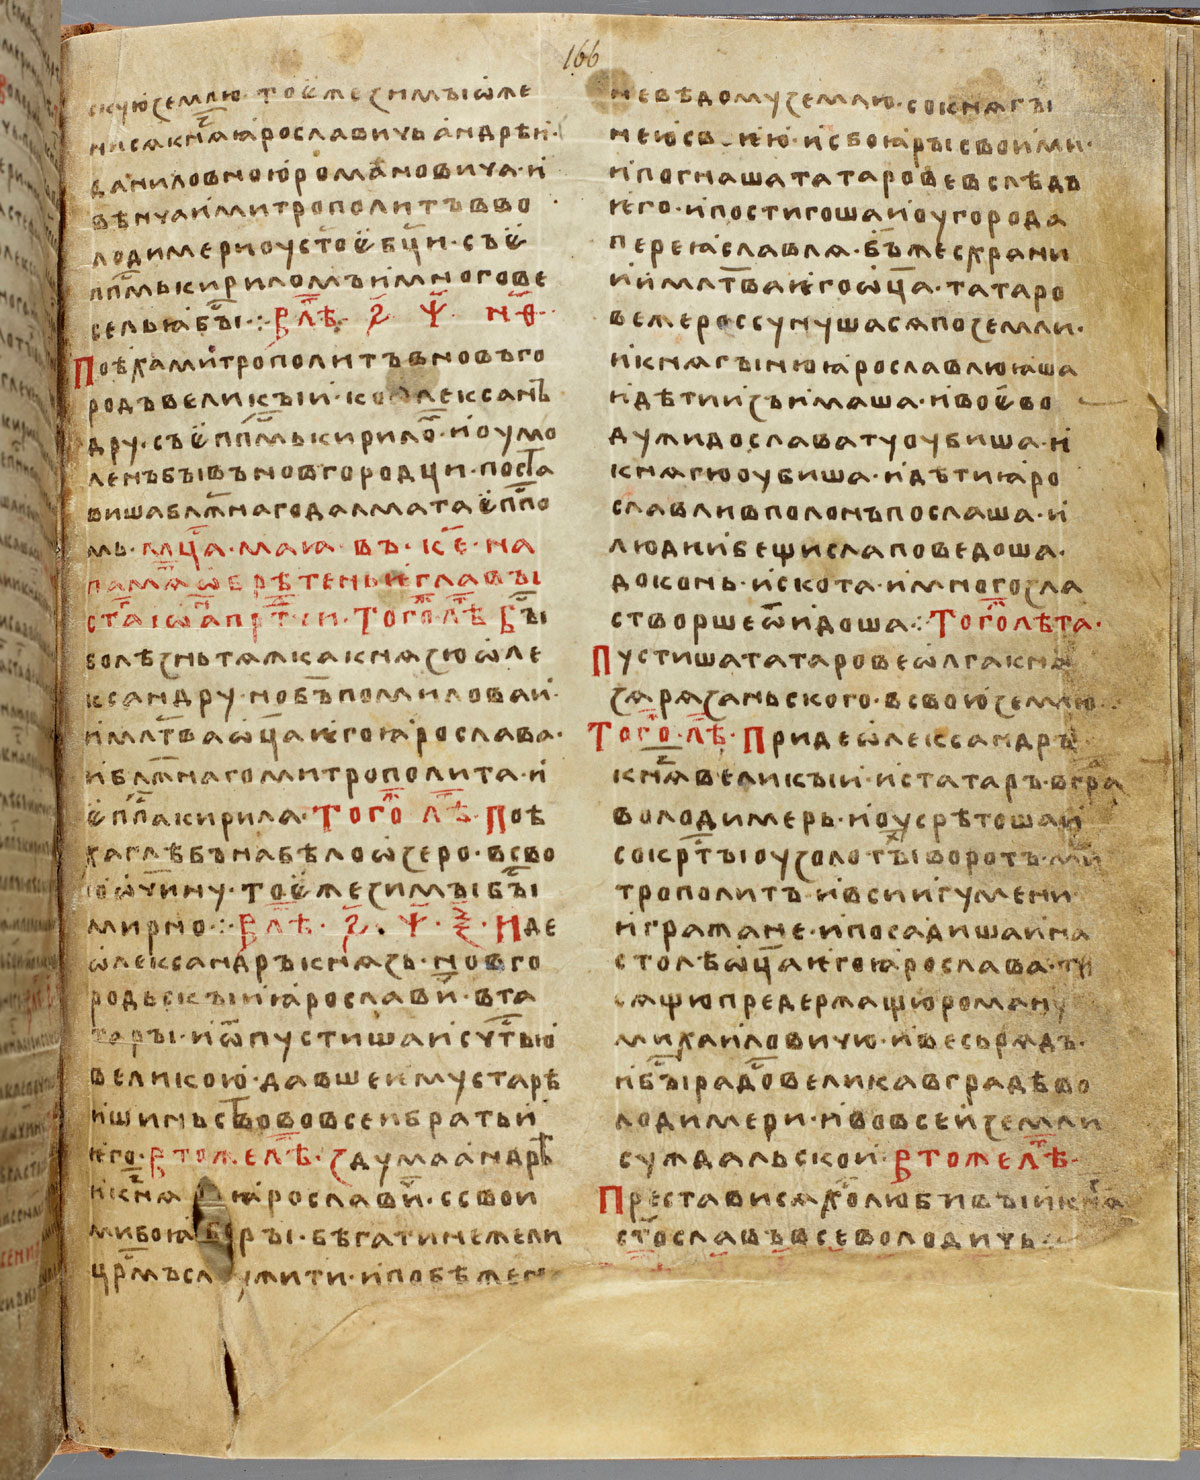 166
скую землю · тоѥ же зимы ѡже
нисѧ кнѧ҃ ꙗрославичь андрѣи ·
даниловною романовича · и
вѣнча и митрополитъ в во
лодимери оу ст҃оѥ бц҃и · съ ѥ
пп҃мь кириломъ и много ве
сельꙗ бы҃ · : В лѣ҃т · ҂ѕ҃ · ѱ҃ · н҃ѳ
Поѣха митрополитъ в новъго
родъ великъıи · ко ѡлександ҃
дру · съ ѥпп҃мь кирило҃ · и оумо
ленъ бъıвъ новгородци · поста
виша бл҃жнаго далмата ѥп҃по
мь · мц҃а · маꙗ · въ · к҃е · на
памѧ҃ ѡбрѣтеньꙗ главъı
ст҃а іѡ҃а прт҃чи · Того · лѣ҃ бъı
болѣзнь тѧжка кнѧзю ѡле
ксандру · но б҃ъ помилова и ·
и млт҃ва ѡц҃а ѥго ꙗрослава ·
и бл҃жнаго митрополита · и
ѥпп҃а кирила · Того лѣ҃ · Поѣ
ха глѣбъ на бѣло ѡзеро · в сво
ю ѡч҃ину · тоѥ же зимъı бъı
мирно · : В лѣ҃т · ҂ѕ҃ · ѱ҃ · ѯ҃ · Иде
ѡлександръ кнѧзь · новго
родьскъıи ꙗрослави҃ · в та
таръı · и ѿпустиша и с чт҃ью
великою · давше ѥму старѣ
ишиньство во всеи братьи
ѥго · В тоже лѣ҃ · здума андрѣ҃
и кнѧ҃ ꙗрослави҃ · с свои
ми боꙗръı · бѣгати нежели
цр҃мъ служити · и побѣже н
невѣдому землю · со кнѧгъı
нею св ѥю · и с боꙗръı своими ·
и погнаша татарове в слѣдъ
ѥго · и постигоша и оу города
переꙗславлѧ · б҃ъ же схрани
и и млт҃ва ѥго ѡц҃а · татаро
ве же россунушасѧ по земли ·
и кнѧгъıню ꙗрославлю ꙗша
и дѣти изъимаша · и воѥво
ду жидослава ту оубиша · и
кнѧгю оубиша · и дѣти ꙗро
славли в полонъ послаша · и
люди и бещисла поведоша ·
до конь · и скота · и много зла
створше ѿидоша · : Того лѣта ·
Пустиша татарове ѡлга кнѧ
зѧ рѧзаньского · в свою землю
Того · лѣ҃ · Приде ѡлександръ
кнѧ҃ великъıи · ис татаръ · в гра
володимерь · и оусрѣтоша и
со крт҃ы оу золотъı воротъ · ми
трополитъ · и вси игумени ·
и гражане · и посадиша и на
столѣ ѡц҃а ѥго ꙗрослава · ты
сѧщю предержащю роману
михаиловичю · и весь рѧдъ ·
и бы҃ радо҃ велика в градѣ во
лодимери · и во всеи земли
суждальскои · В тоже лѣ҃ ·
Престависѧ хо҃любивъıи кнѧ҃
ст҃ославъ всеволодичь